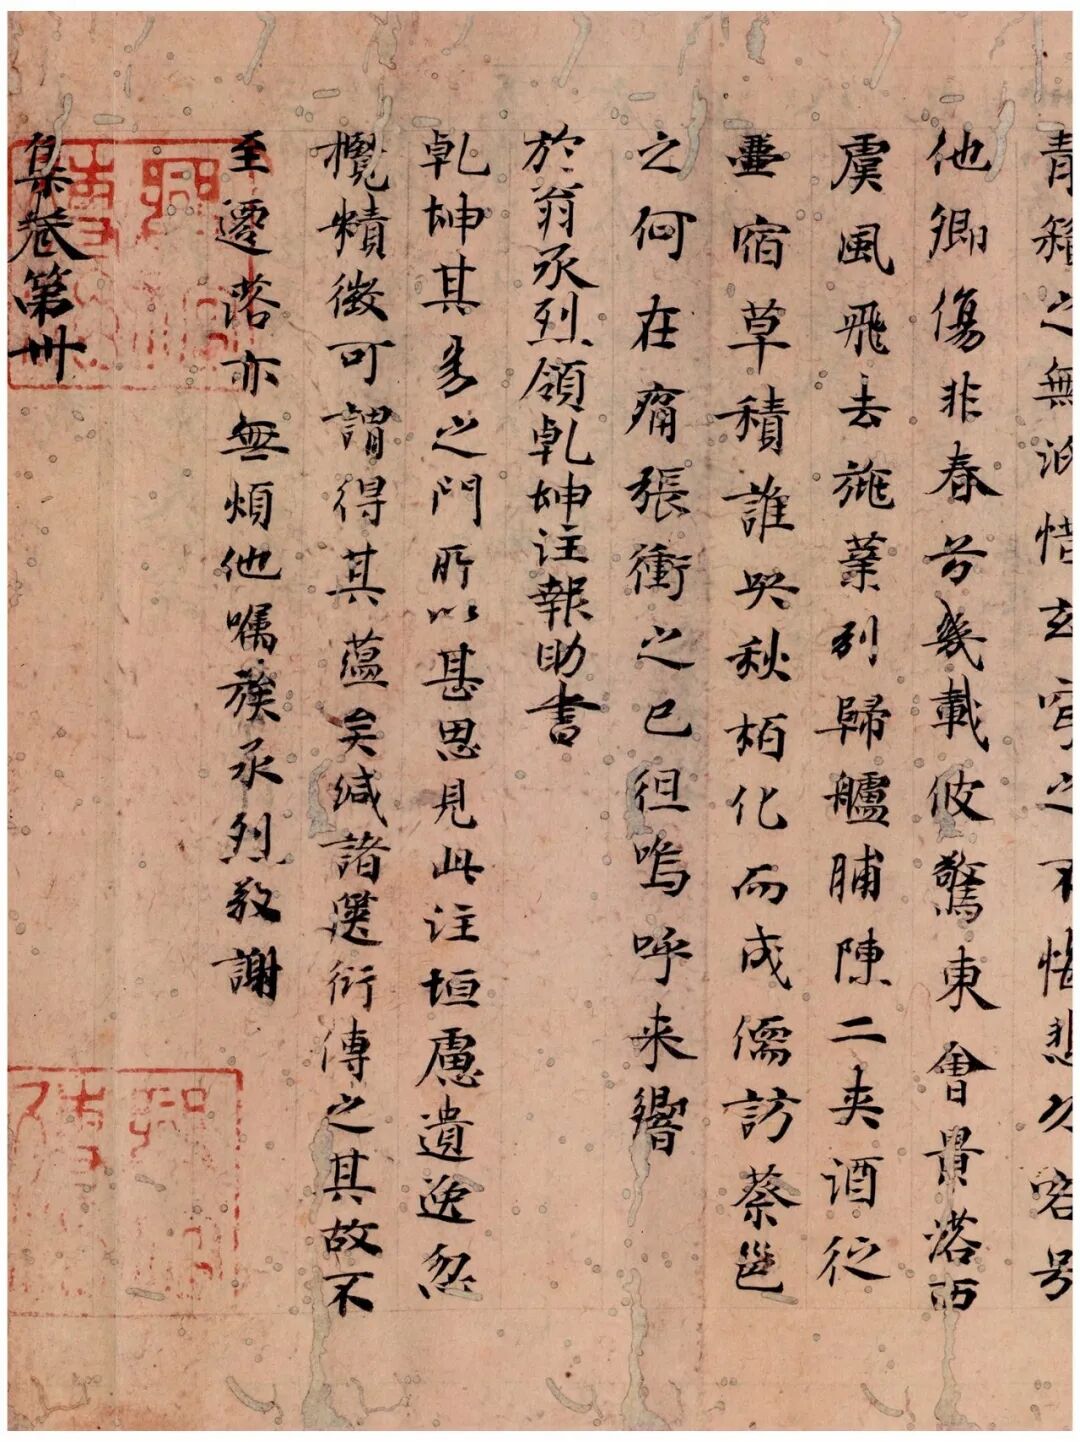 青箱之無泊惜玄穹之不憖悲力容号
他卿傷非春兮幾載佊驚東會貴落西
虞風飛去旐業列歸艫脯陳二夾酒従
壘宿草積誰哭秋栢化而成儒訪蔡邕
之何在痛張衝之已徂嗚呼来嚮
於翁承烈領乹坤注報助書
乹坤其易之門所以甚思見此注垣慮遺逸忽
攬精微可謂得其蘊矣緘諸篋衍傳之其故不
至遷落亦無煩他囑族承烈敬謝
集卷第卅